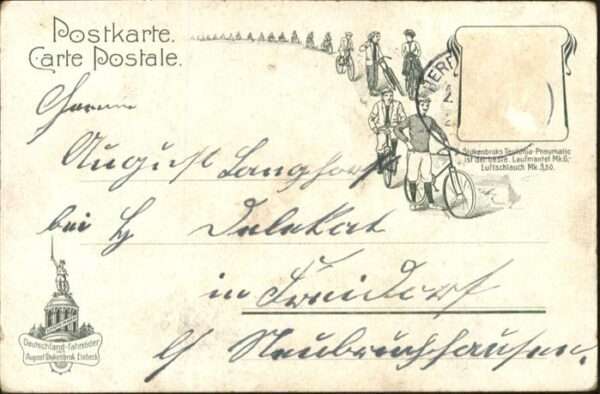 Postkarte.
Carte Postale.
HERF
Stukenbroks Teutonia-Pneumatic
ist der beste. Laufmantel Mk. 6,-
Luftschlauch Mk. 3,50.
Herrn
August Langhorst
bei H
in
b/ Neubruchhausen.
Deutschland-Fahrräder
August Stukenbrok Einbeck